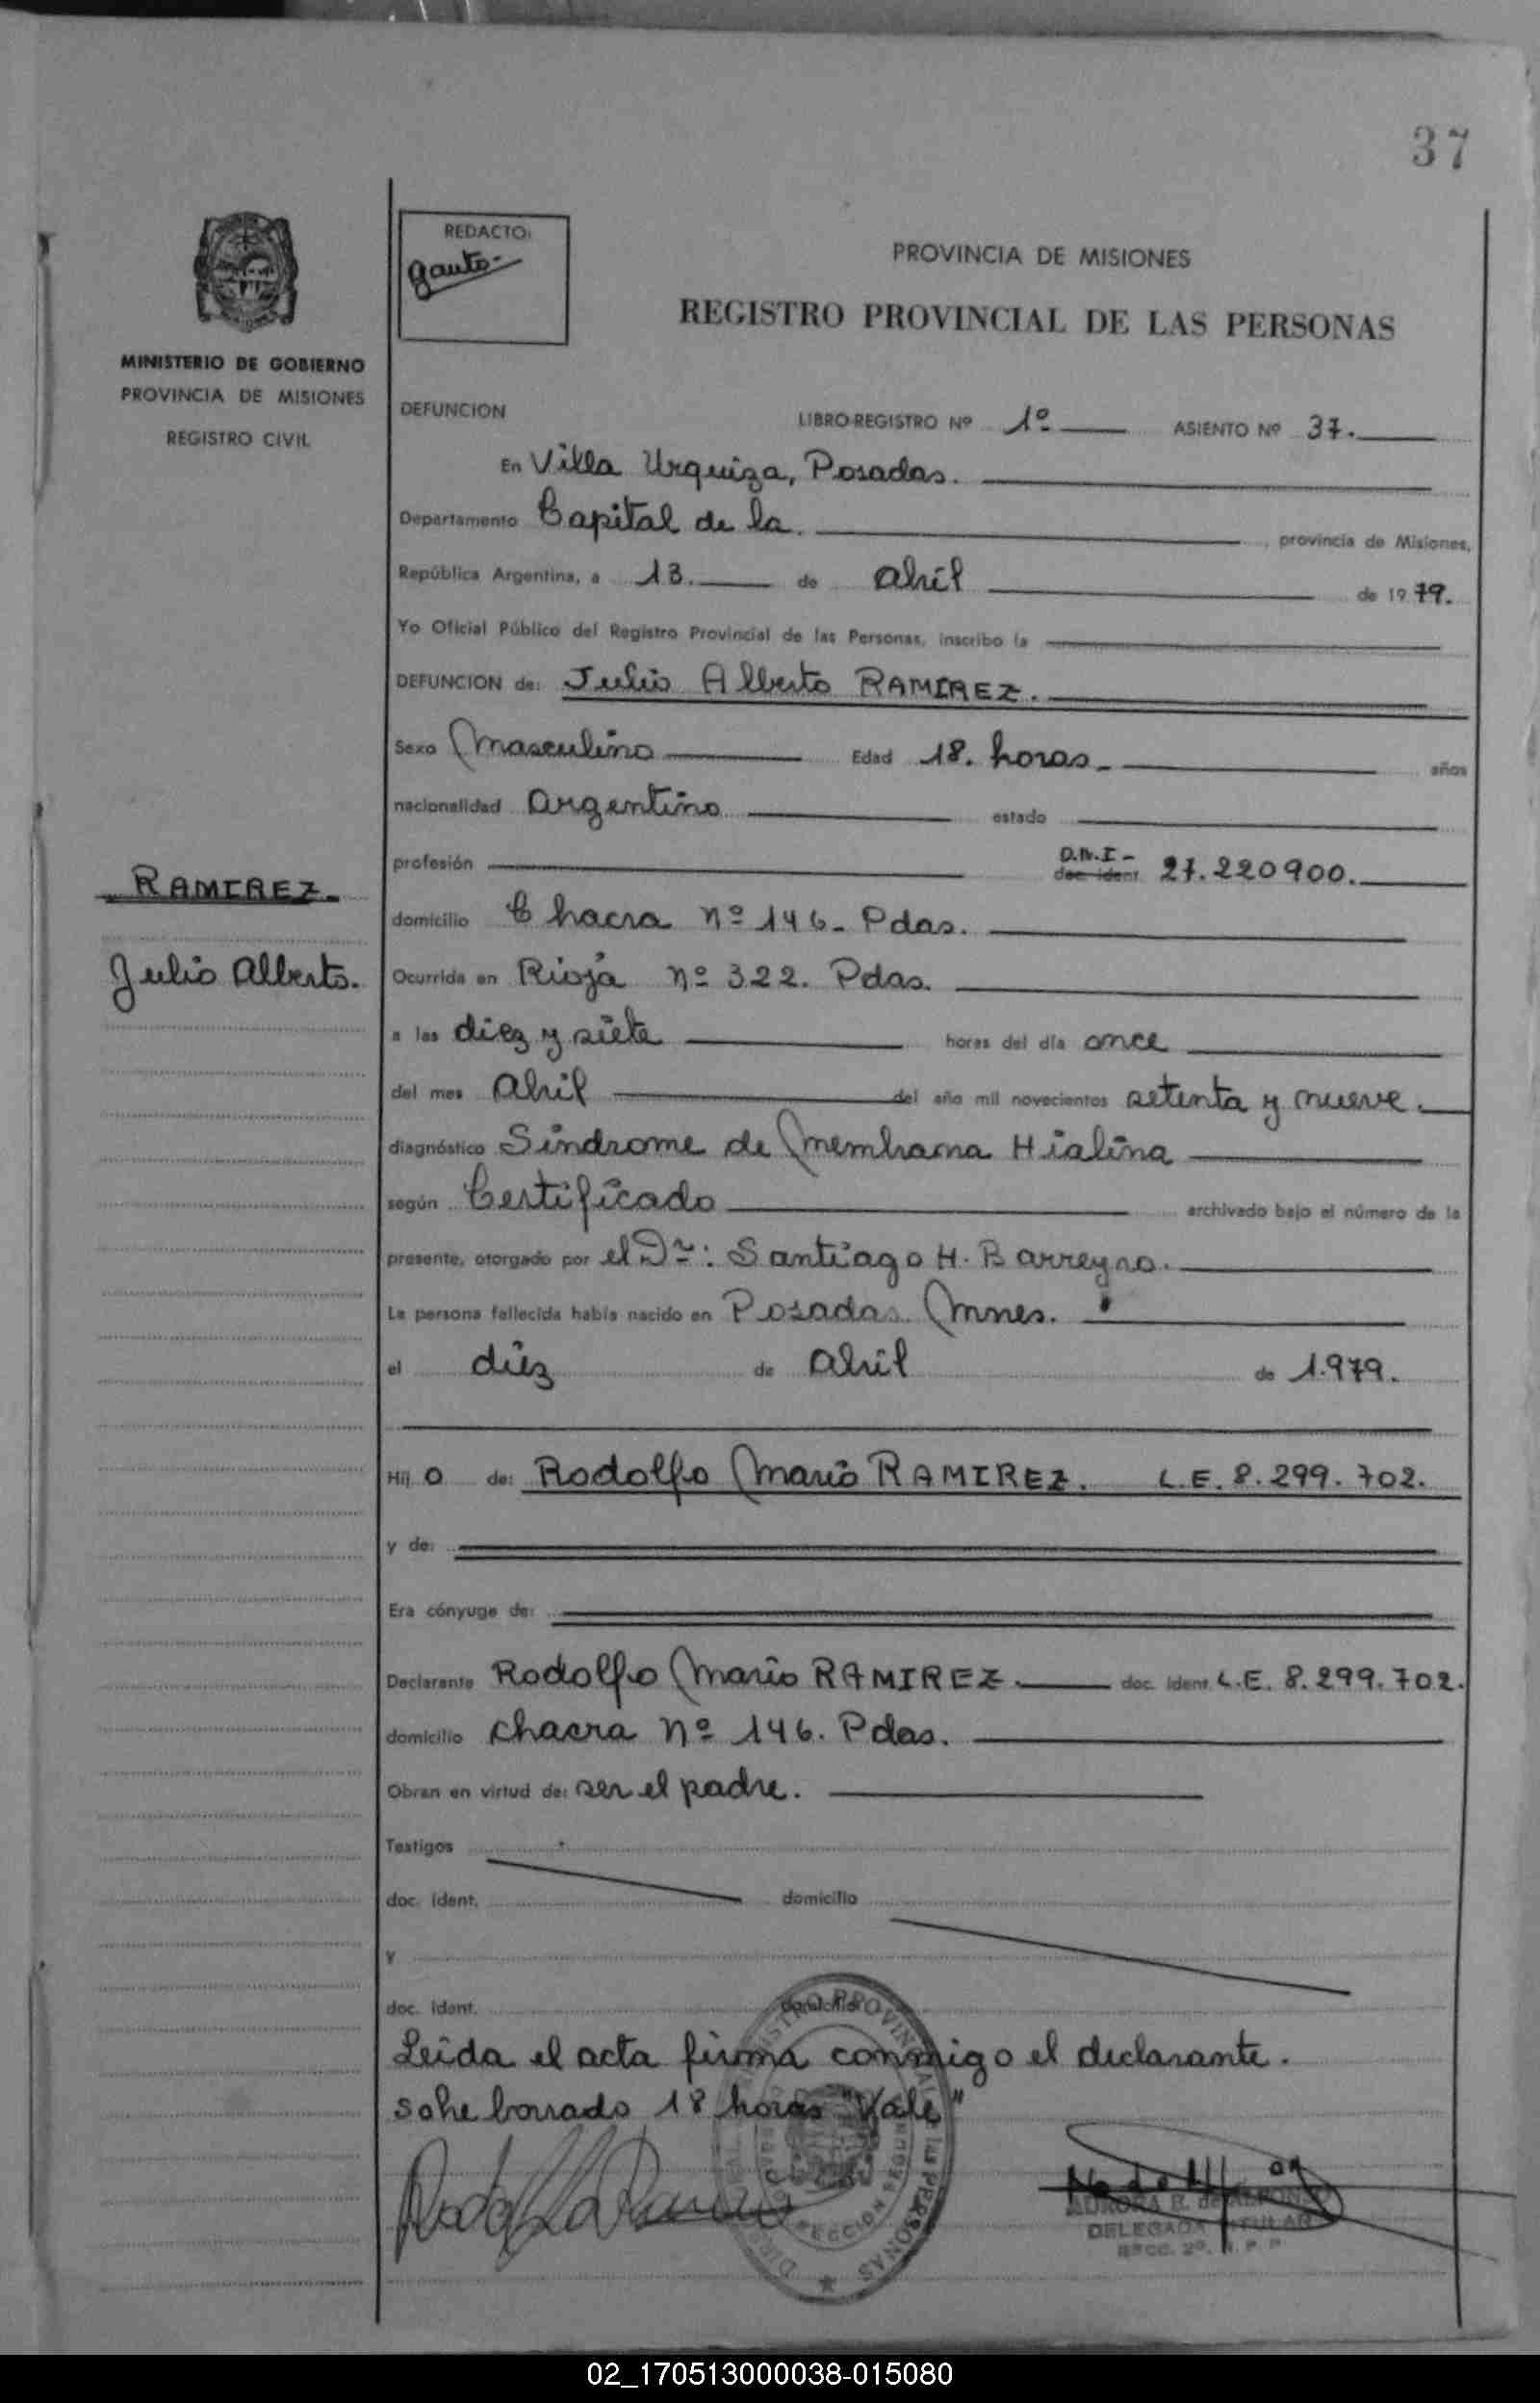 37
REDACTO:
Gauto-
PROVINCIA DE MISIONES
REGISTRO PROVINCIAL DE LAS PERSONAS
MINISTERIO DE GOBIERNO
PROVINCIA DE MISIONES
REGISTRO CIVIL
DEFUNCION LIBRO-REGISTRO Nº 1º ASIENTO Nº 37.
En Villa Urquiza, Posadas.
Departamento Capital de la. , provincia de Misiones,
República Argentina, a 13. de abril de 1979.
Yo Oficial Público del Registro Provincial de las Personas, inscribo la
DEFUNCION de: Julio Alberto RAMIREZ.
Sexo Masculino Edad 18. horas- años
nacionalidad argentino estado
profesión D.N.I- doc. ident. 27.220900.
RAMIREZ-
domicilio Chacra nº 146- Pdas.
Julio Alberto.
Ocurrida en Rioja nº 322. Pdas.
a las diez y siete horas del día once
del mes abril del año mil novecientos setenta y nueve.
diagnóstico Síndrome de Membrana Hialina
según Certificado archivado bajo el número de la
presente, otorgado por el Dr: Santiago H. Barreyro.
La persona fallecida había nacido en Posadas. Mnes.
el diez de abril de 1.979.
Hij o de: Rodolfo Mario RAMIREZ. L.E. 8.299.702.
y de:
Era cónyuge de:
Declarante Rodolfo Mario RAMIREZ. doc. ident. L.E. 8.299.702.
domicilio chacra nº 146. Pdas.
Obran en virtud de: ser el padre.
Testigos
doc. ident. domicilio
y
doc. ident. domicilio
Leida el acta firma conmigo el declarante.
sobre borrado 18 horas "Vale"
AURORA R. de
DELEGADA TITULAR
SECC. 2º. R. P. P.
02_170513000038-015080